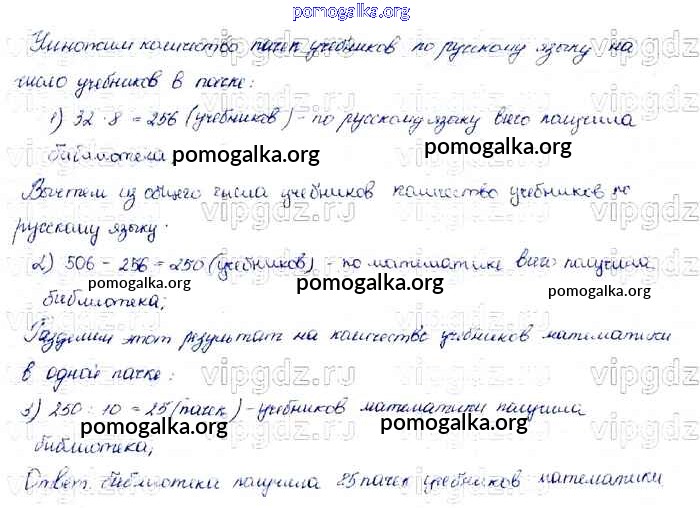 pomogalka.org
Умножим количество пачек учебников по русскому языку на
число учебников в пачке:
1) 32 · 8 = 256 (учебников) - по русскому языку всего получила
библиотека;
pomogalka.org
pomogalka.org
Вычтем из общего числа учебников количество учебников по
русскому языку.
2) 506 - 256 = 250 (учебников) - по математике всего получила
библиотека;
pomogalka.org
pomogalka.org
pomogalka.org
Разделим этот результат на количество учебников математики
в одной пачке:
3) 250 : 10 = 25 (пачек) - учебников математики получила
библиотека;
pomogalka.org
pomogalka.org
Ответ: библиотека получила 25 пачек учебников математики
vipgdz.ru